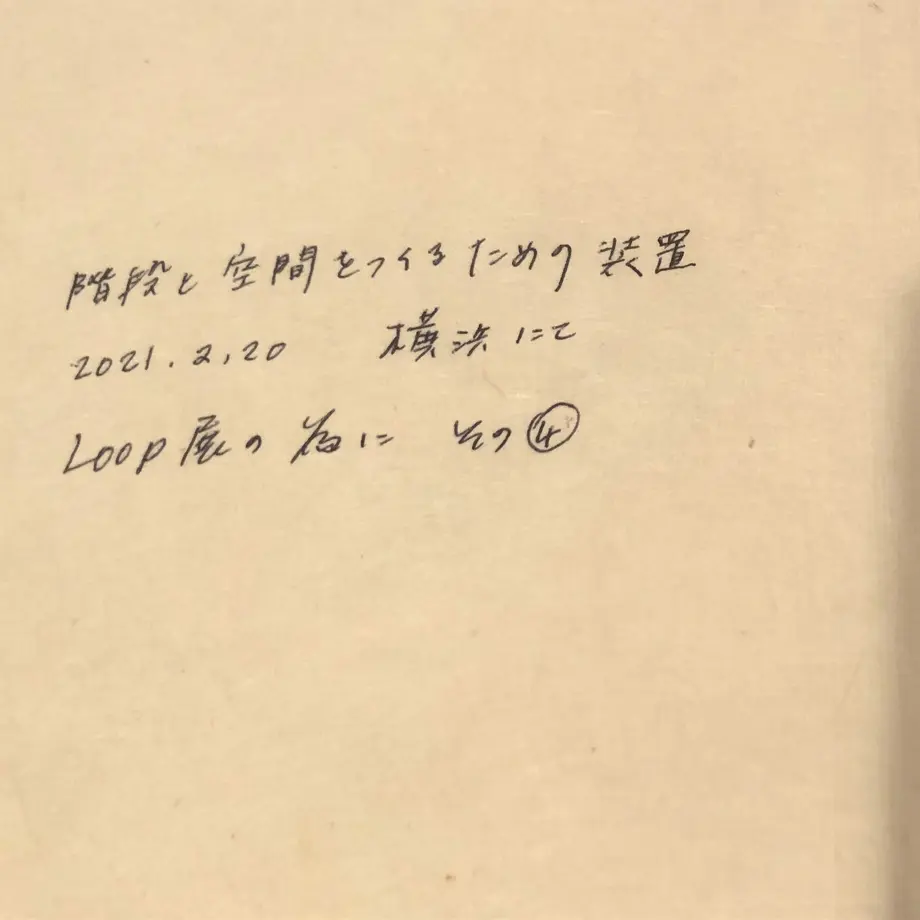 階段と空間をつくるための装置
2021.2.20 横浜にて
Loop展の為に その④